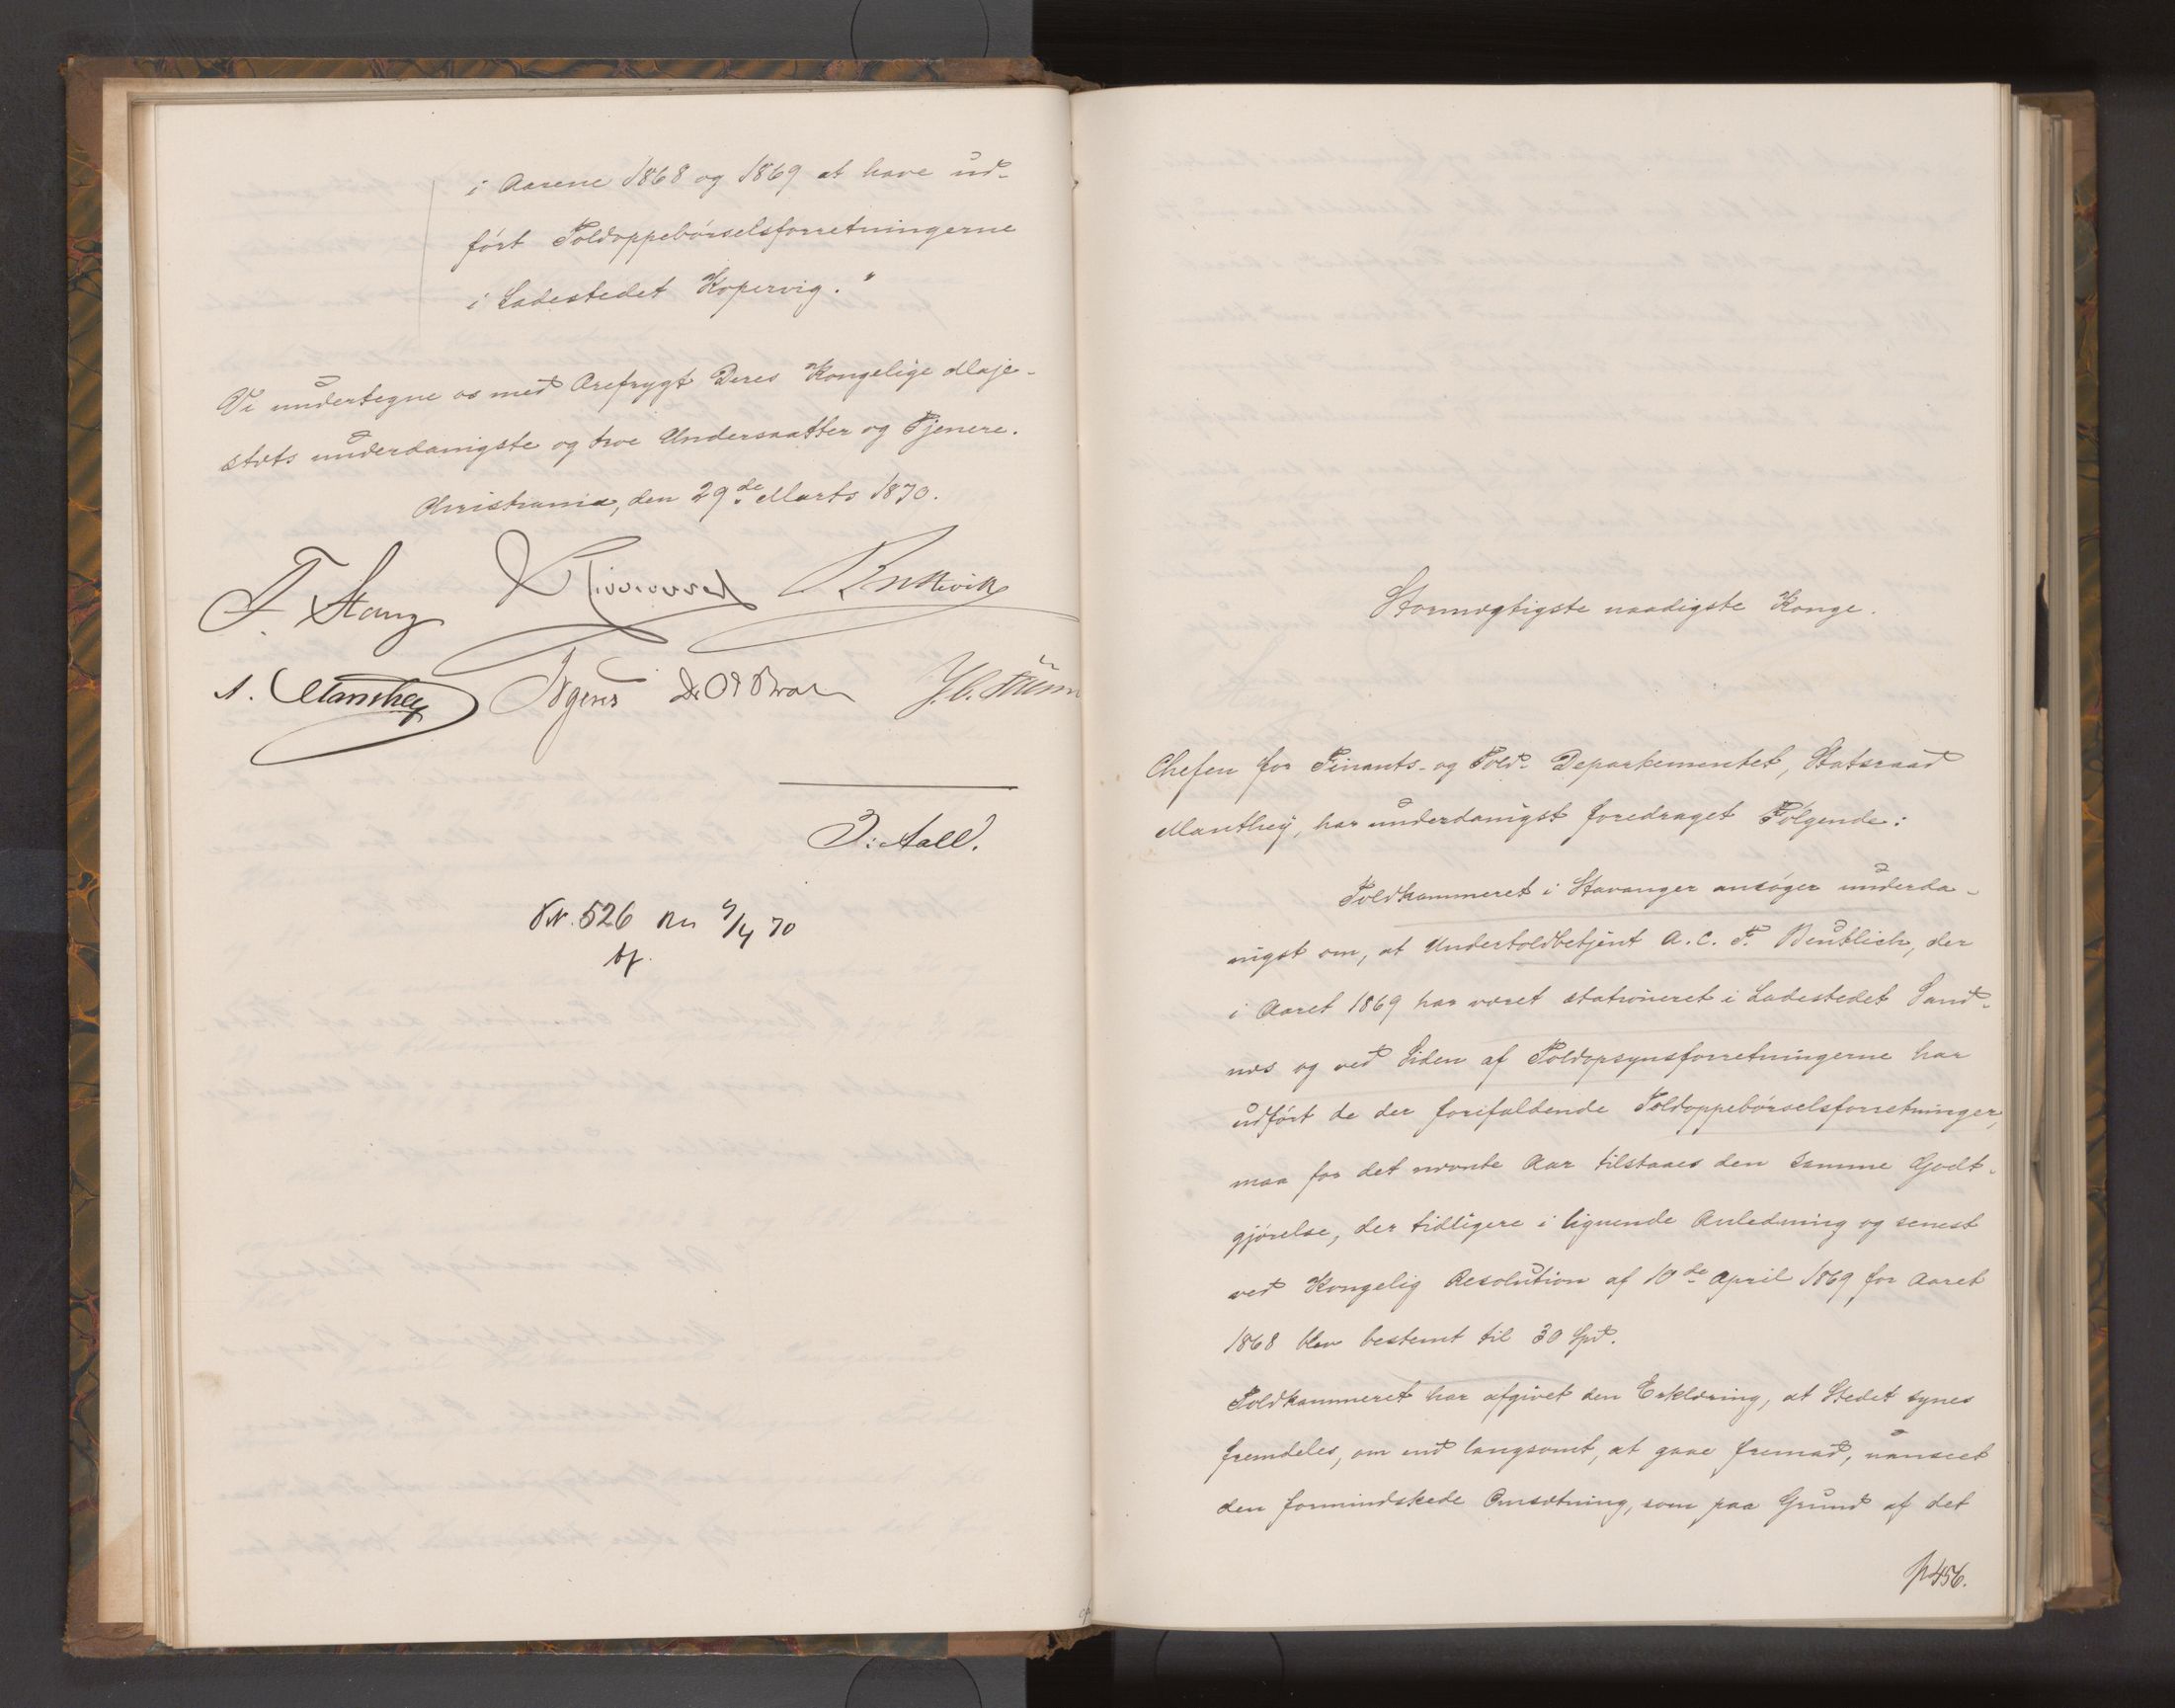 i Aarene 1868 og 1869 at have ud-
ført Toldoppebørselsforretningerne
i Ladestedet Kopervig."
Vi undertegne os med Ærefrygt Deres Kongelige Maje-
stæts underdanigste og troe Undersaatter og Tjenere.
Christiania, den 29de Marts 1870.
F. Stang
A. Manthey Irgens
J: Aall.
526 9/4 70
Stormægtigste naadigste Konge.
Chefen for Finants- og Told-Departementet, Statsraad
Manthey, har underdanigst foredraget Følgende:
Toldkammeret i Stavanger ansøger underda-
nigst om, at Undertoldbetjent A. C. F. Beutlich, der
i Aaret 1869 har været stationeret i Ladestedet Sand-
næs og ved Siden af Toldopsynsforretningerne har
udført de der forefaldende Toldoppebørselsforretninger,
maa for det nævnte Aar tilstaaes den samme Godt-
gjørelse, der tidligere i lignende Anledning og senest
ved Kongelig Resolution af 10de April 1869 for Aaret
1868 blev bestemt til 30 Spd.
Toldkammeret har afgivet den Erklæring, at Stedet synes
fremdeles, om end langsomt, at gaae fremad, uanseet
den formindskede Omsætning, som paa Grund af det
p 456.